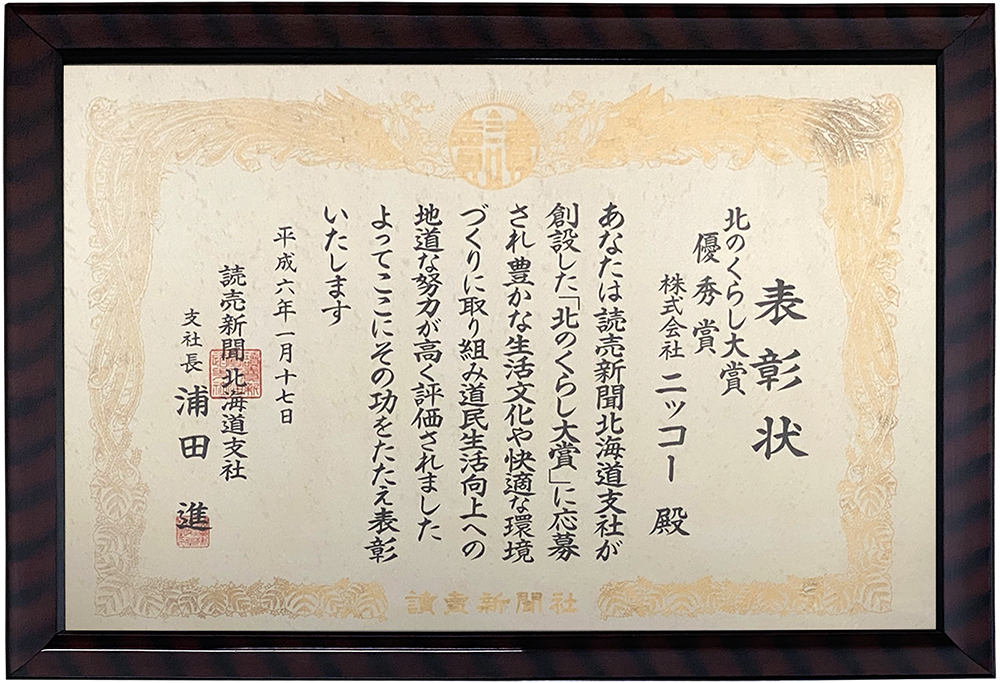 表彰状
北のくらし大賞
優秀賞
株式会社 ニッコー 殿
あなたは読売新聞北海道支社が
創設した「北のくらし大賞」に応募
され豊かな生活文化や快適な環境
づくりに取り組み道民生活向上への
地道な努力が高く評価されました
よってここにその功をたたえ表彰
いたします
平成六年一月十七日
読売新聞北海道支社
支社長 浦田 進
讀賣新聞社